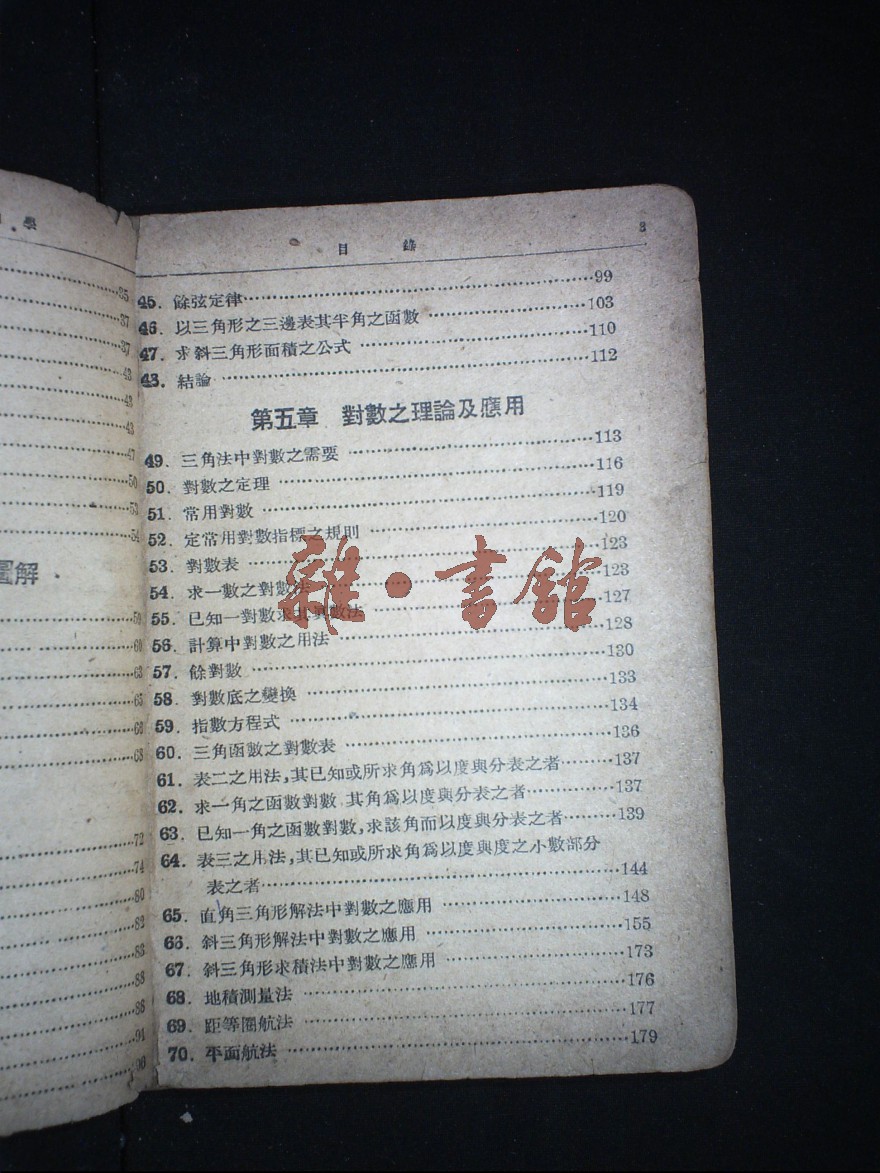 學
35
37
37
43
43
43
47
50
53
54
圖解
59
60
63
65
68
68
72
74
80
82
83
88
86
91
96
目 錄 3
45. 餘弦定律 99
46. 以三角形之三邊表其半角之函數 103
47. 求斜三角形面積之公式 110
48. 結論 112
第五章 對數之理論及應用
49. 三角法中對數之需要 113
50. 對數之定理 116
51. 常用對數 119
52. 定常用對數指標之規則 120
53. 對數表 123
54. 求一數之對數法 123
55. 已知一對數求其眞數法 127
56. 計算中對數之用法 128
57. 餘對數 130
58. 對數底之變換 133
59. 指數方程式 134
60. 三角函數之對數表 136
61. 表二之用法,其已知或所求角爲以度與分表之者 137
62. 求一角之函數對數 其角爲以度與分表之者 137
63. 已知一角之函數對數,求該角而以度與分表之者 139
64. 表三之用法,其已知或所求角爲以度與度之小數部分
表之者 144
65. 直角三角形解法中對數之應用 148
66. 斜三角形解法中對數之應用 155
67. 斜三角形求積法中對數之應用 173
68. 地積測量法 176
69. 距等圈航法 177
70. 平面航法 179
雜·書館